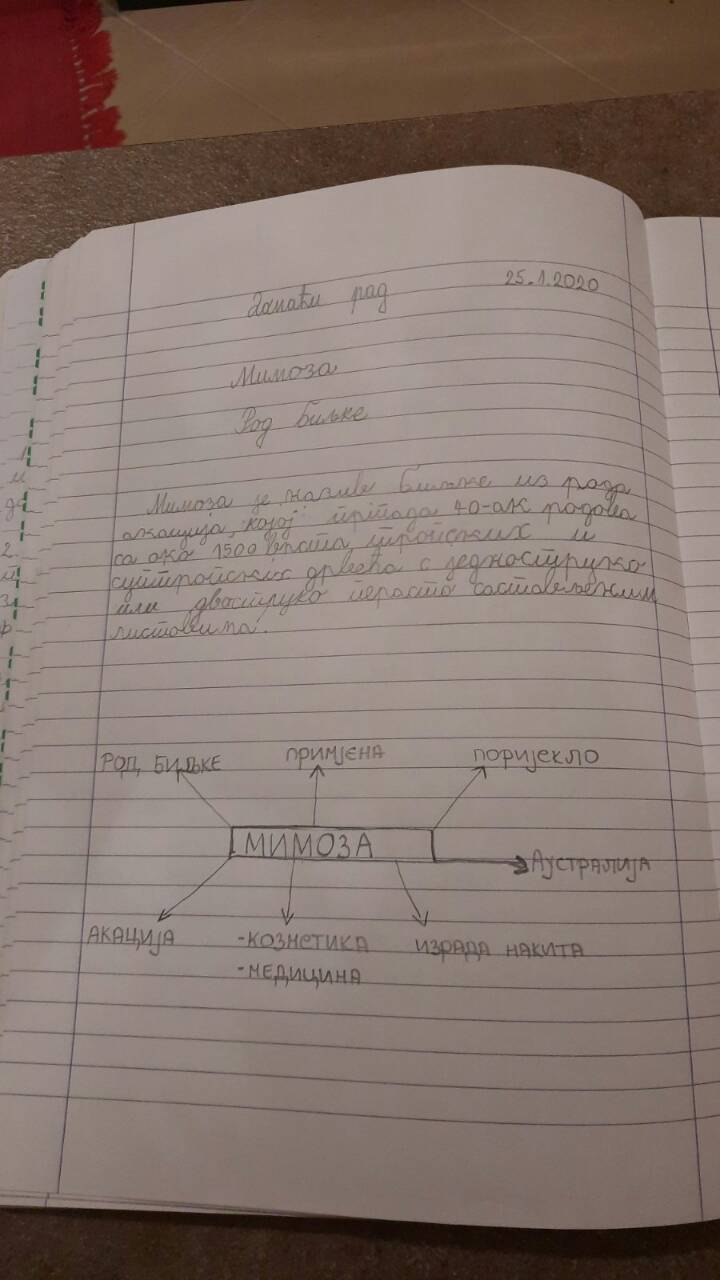 Домаћи рад 25.1.2020
Мимоза
Род биљке
Мимоза је назив биљке из рода
акација, којој припада 40-ак родова
са око 1500 врста тропских и
суптропских дрвећа с једноструко
или двоструко перасто састављеним
листовима.
РОД БИЉКЕ ПРИМЈЕНА ПОРИЈЕКЛО
МИМОЗА
АУСТРАЛИЈА
АКАЦИЈА -КОЗНЕТИКА ИЗРАДА НАКИТА
-МЕДИЦИНА